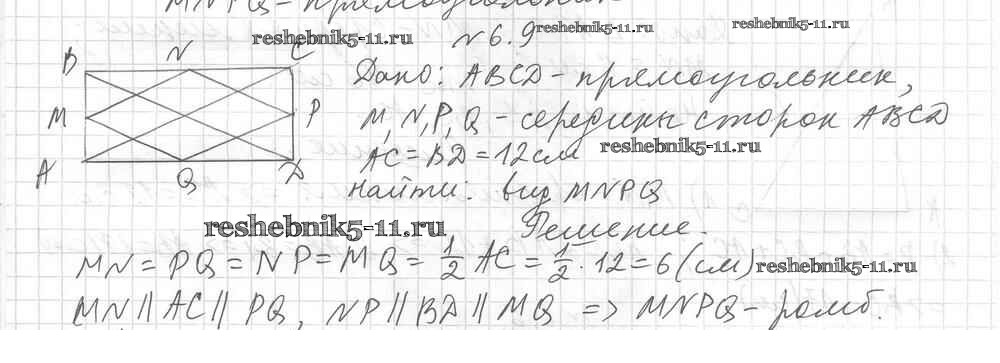 MNPQ - прямоугольник
reshebnik5-11.ru № 6.9 reshebnik5-11.ru reshebnik5-11.ru
B N C
Дано: ABCD - прямоугольник,
M P M, N, P, Q - середины сторон ABCD
AC = BD = 12 см reshebnik5-11.ru
A Q D
найти: вид MNPQ
reshebnik5-11.ru Решение.
MN = PQ = NP = MQ = 1/2 AC = 1/2 · 12 = 6 (см) reshebnik5-11.ru
MN || AC || PQ, NP || BD || MQ => MNPQ - ромб.